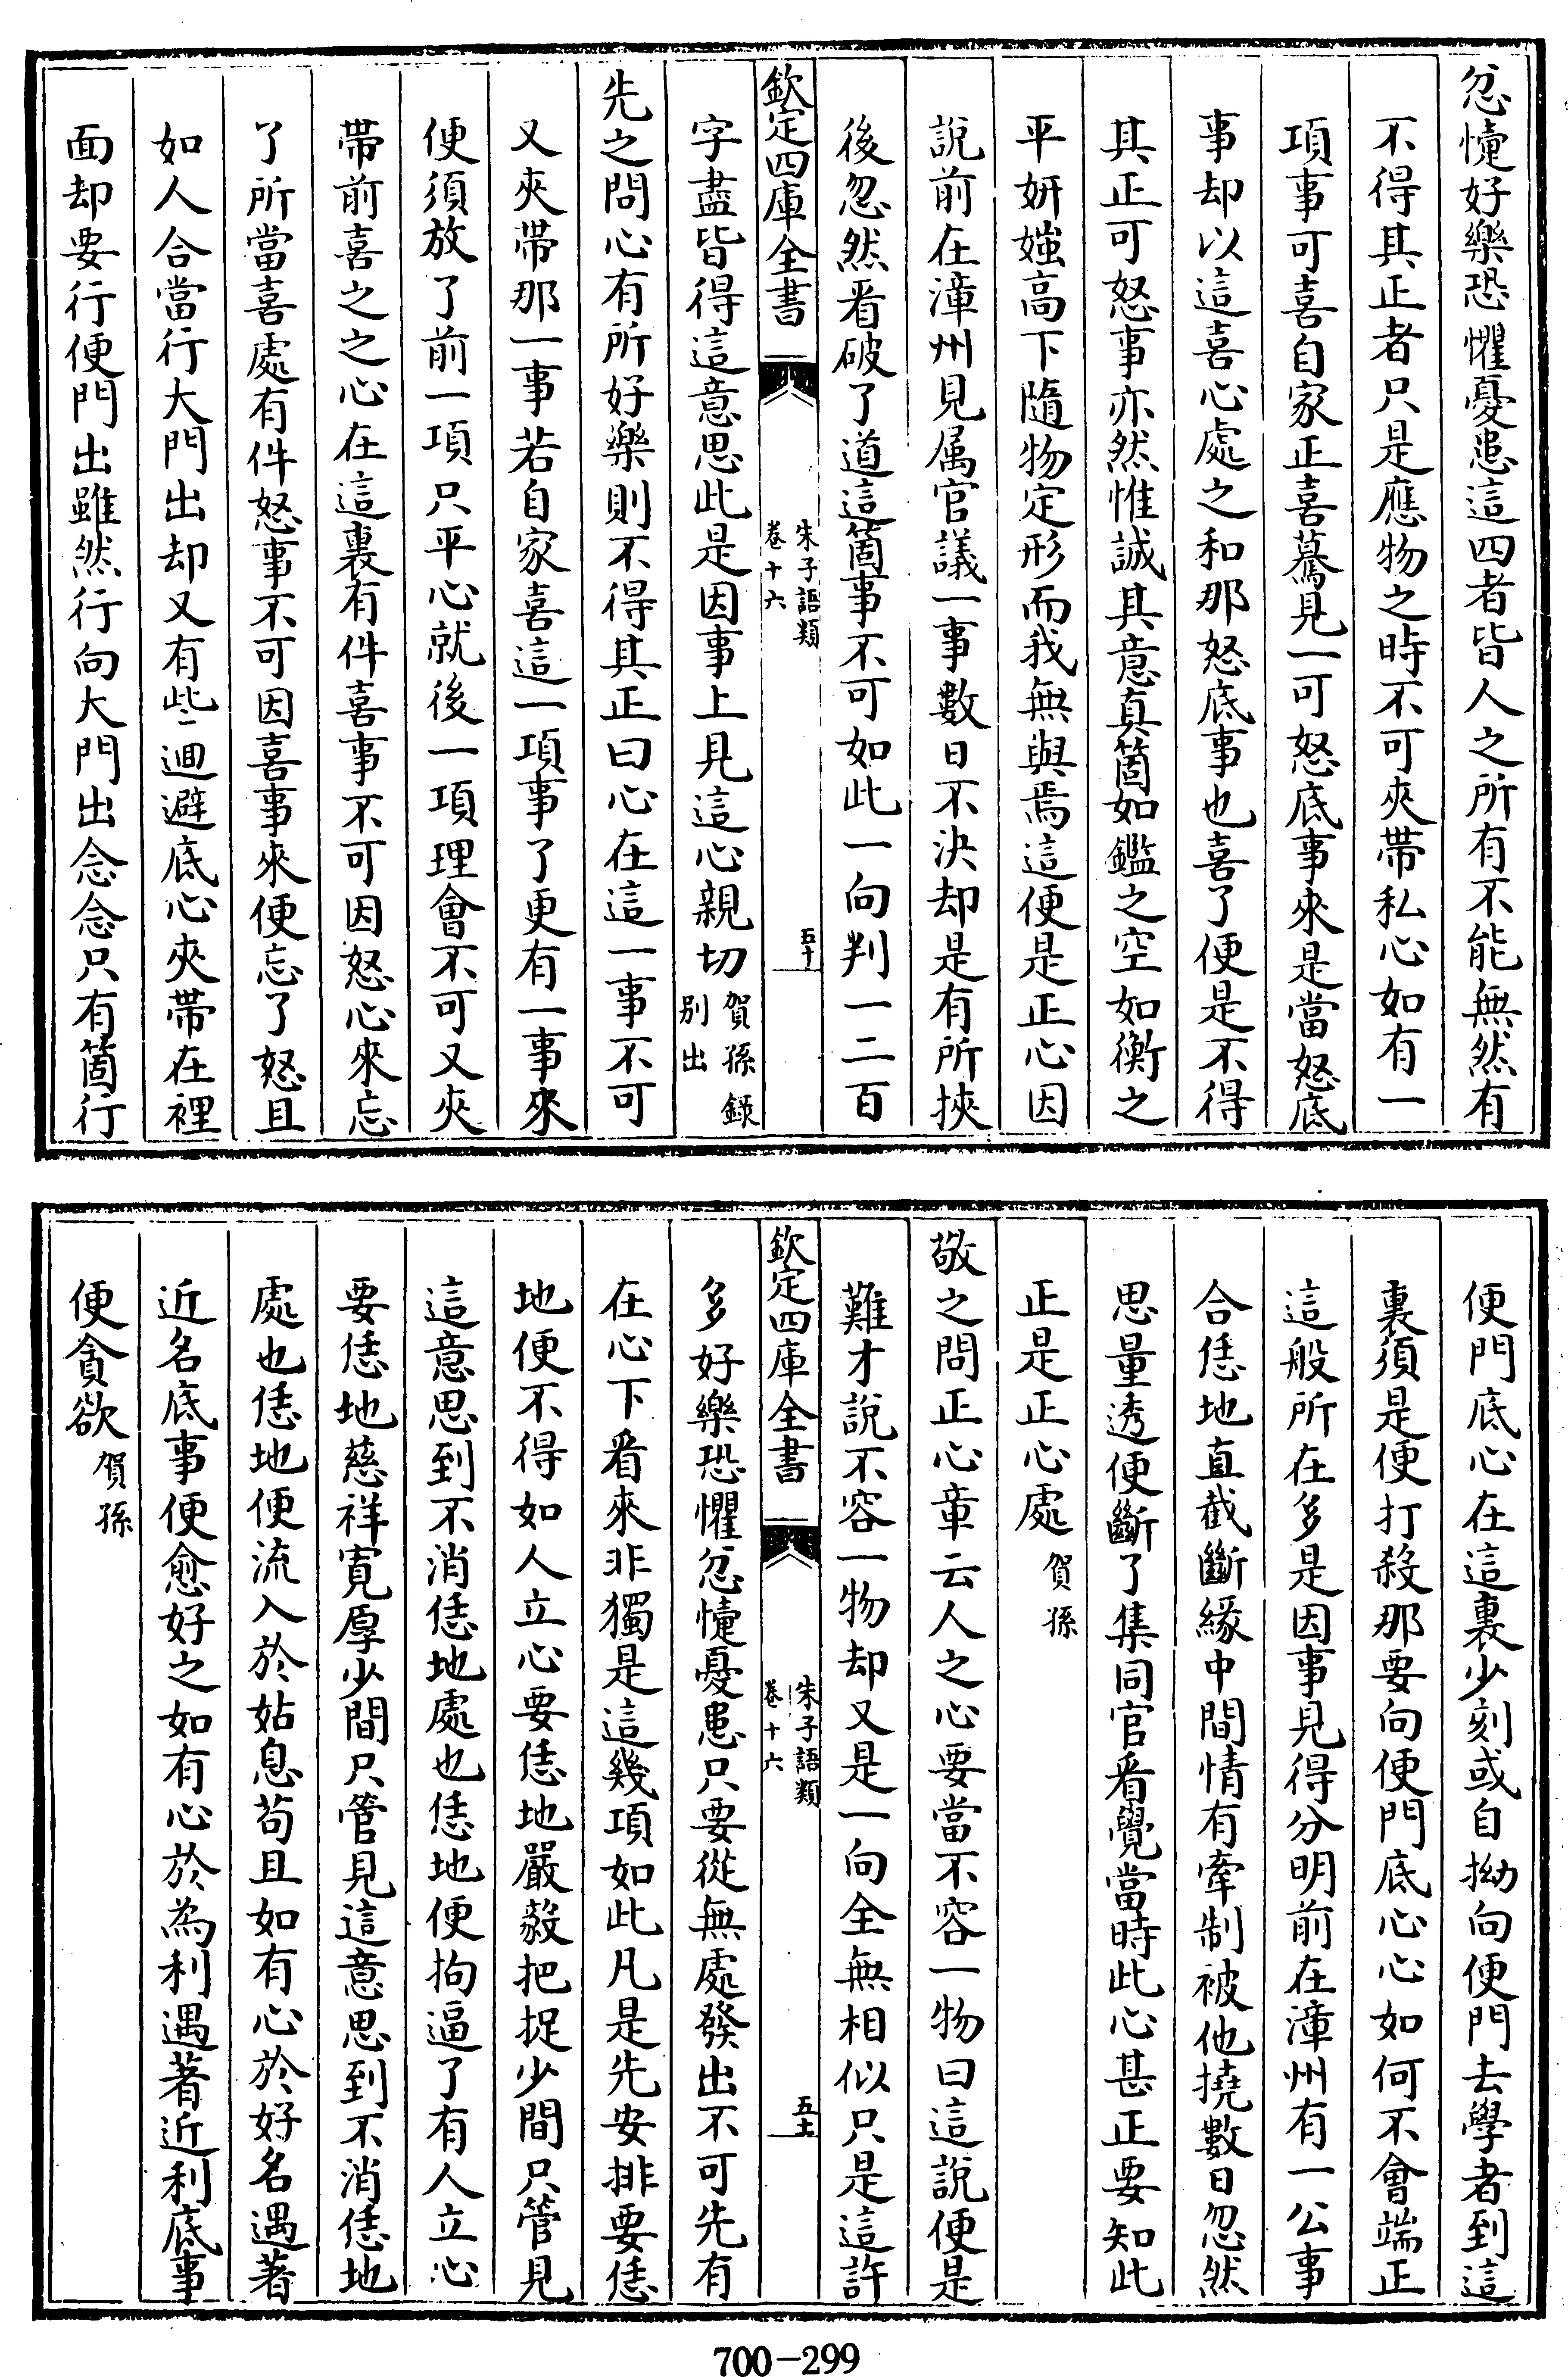 忿懥好樂恐懼憂患這四者皆人之所有不能無然有
不得其正者只是應物之時不可夾帶私心如有一
項事可喜自家正喜驀見一可怒底事來是當怒底
事却以這喜心處之和那怒底事也喜了便是不得
其正可怒事亦然惟誠其意真箇如鑑之空如衡之
平妍媸高下隨物定形而我無與焉這便是正心因
說前在漳州見属官議一事數日不決却是有所挾
後忽然看破了道這箇事不可如此一向判一二百
欽定四庫全書
朱子語類
卷十六
五十
字盡皆得這意思此是因事上見這心親切賀孫錄別出
先之問心有所好樂則不得其正曰心在這一事不可
又夾帶那一事若自家喜這一項事了更有一事來
便須放了前一項只平心就後一項理會不可又夾
帶前喜之之心在這裏有件喜事不可因怒心來忘
了所當喜處有件怒事不可因喜事來便忘了怒且
如人合當行大門出却又有些迴避底心夾帶在裡
面却要行便門出雖然行向大門出念念只有箇行
便門底心在這裏少刻或自拗向便門去學者到這
裏須是便打殺那要向便門底心心如何不會端正
這般所在多是因事見得分明前在漳州有一公事
合恁地直截斷緣中間情有牽制被他撓數日忽然
思量透便斷了集同官看覺當時此心甚正要知此
正是正心處賀孫
敬之問正心章云人之心要當不容一物曰這說便是
難才說不容一物却又是一向全無相似只是這許
欽定四庫全書
朱子語類
卷十六
五十一
多好樂恐懼忿懥憂患只要從無處發出不可先有
在心下看來非獨是這幾項如此凡是先安排要恁
地便不得如人立心要恁地嚴毅把捉少間只管見
這意思到不消恁地處也恁地便拘逼了有人立心
要恁地慈祥寬厚少間只管見這意思到不消恁地
處也恁地便流入於姑息苟且如有心於好名遇著
近名底事便愈好之如有心於為利遇著近利底事
便貪欲賀孫
700-299